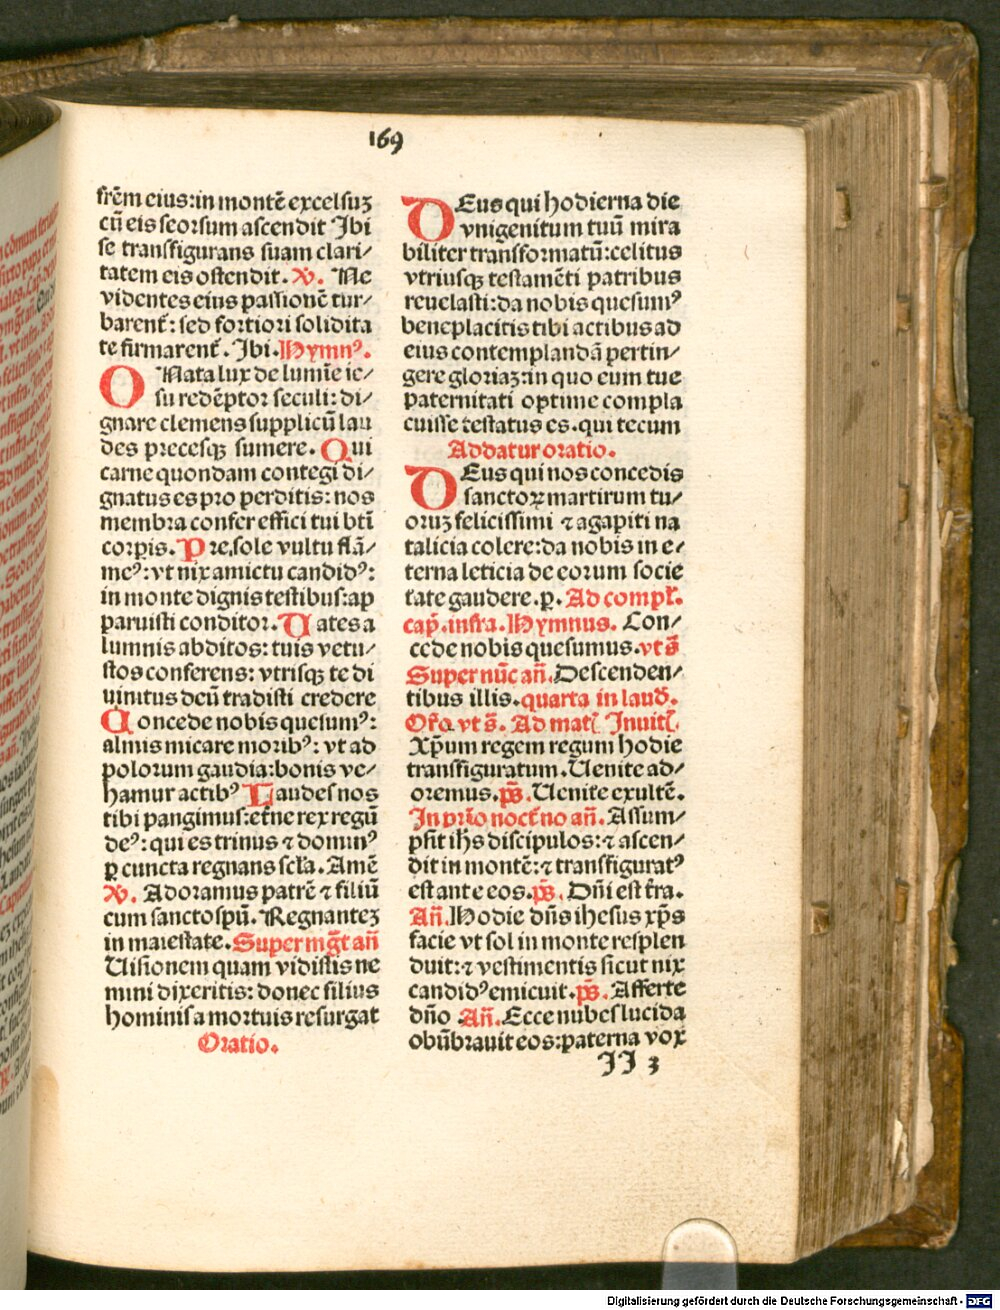 169
frēm eius: in montē excelsuꝫ
cū eis seorsum ascendit Ibi
se transfigurans suam clari/
tatem eis ostendit. ℣. Ne
videntes eius passionē tur/
barent᷑: sed fortiori solidita
te firmarent᷑. Ibi. Hymnꝰ.
O Nata lux de lumīe ie/
su redēptor seculi: di/
gnare clemens supplicū lau
des precesqꝫ sumere. Qui
carne quondam contegi di/
gnatus es pro perditis: nos
membra confer effici tui bt̄i
corpis. Pre sole vultu flā/
meꝰ: vt nix amictu candidꝰ:
in monte dignis testibus: ap
paruisti conditor. Uates a
lumnis abditos: tuis vetu/
stos conferens: vtrisqꝫ te di
uinitus deū tradisti credere
Concede nobis quesumꝰ:
almis micare moribꝰ: vt ad
polorum gaudia: bonis ve/
hamur actibꝰ Laudes nos
tibi pangimus: etne rex regū
deꝰ: qui es trinus ⁊ dominꝰ
ꝑ cuncta regnans scl̄a. Amē
℣. Adoramus patrē ⁊ filiū
cum sancto spū. Regnantez
in maiestate. Super mg̅t an̄
Uisionem quam vidistis ne
mini dixeritis: donec filius
hominis a mortuis resurgat
Oratio.
DEus qui hodierna die
vnigenitum tuū mira
biliter transformatū: celitus
vtriusqꝫ testamēti patribus
reuelasti: da nobis quesumꝰ
beneplacitis tibi actibus ad
eius contemplandā pertin/
gere gloriaꝫ: in quo eum tue
paternitati optime compla
cuisse testatus es. qui tecum
Addatur oratio.
DEus qui nos concedis
sanctoꝝ martirum tu/
oruꝫ felicissimi ⁊ agapiti na
talicia colere: da nobis in e/
terna leticia de eorum socie
tate gaudere. p. Ad compl̄.
cap̄. infra. Hymnus. Con/
cede nobis quesumus. vt s̄
Super nūc an̄. Descenden/
tibus illis. quarta in laud̄.
Or̄o vt s̄. Ad mat̄ Inuit̄.
Xp̄um regem regum hodie
transfiguratum. Uenite ad/
oremus. ps̄. Uenite exultē.
In prīo noct̄no an̄. Assum/
psit ihs discipulos: ⁊ ascen/
dit in montē: ⁊ transfiguratꝰ
est ante eos. ps̄. Dn̄i est t̄ra.
An̄. Hodie dn̄s ihesus xp̄s
facie vt sol in monte resplen
duit: ⁊ vestimentis sicut nix
candidꝰ emicuit. ps̄. Afferte
dn̄o An̄. Ecce nubes lucida
obūbrauit eos: paterna vox
II 3
Digitalisierung gefördert durch die Deutsche Forschungsgemeinschaft - DFG